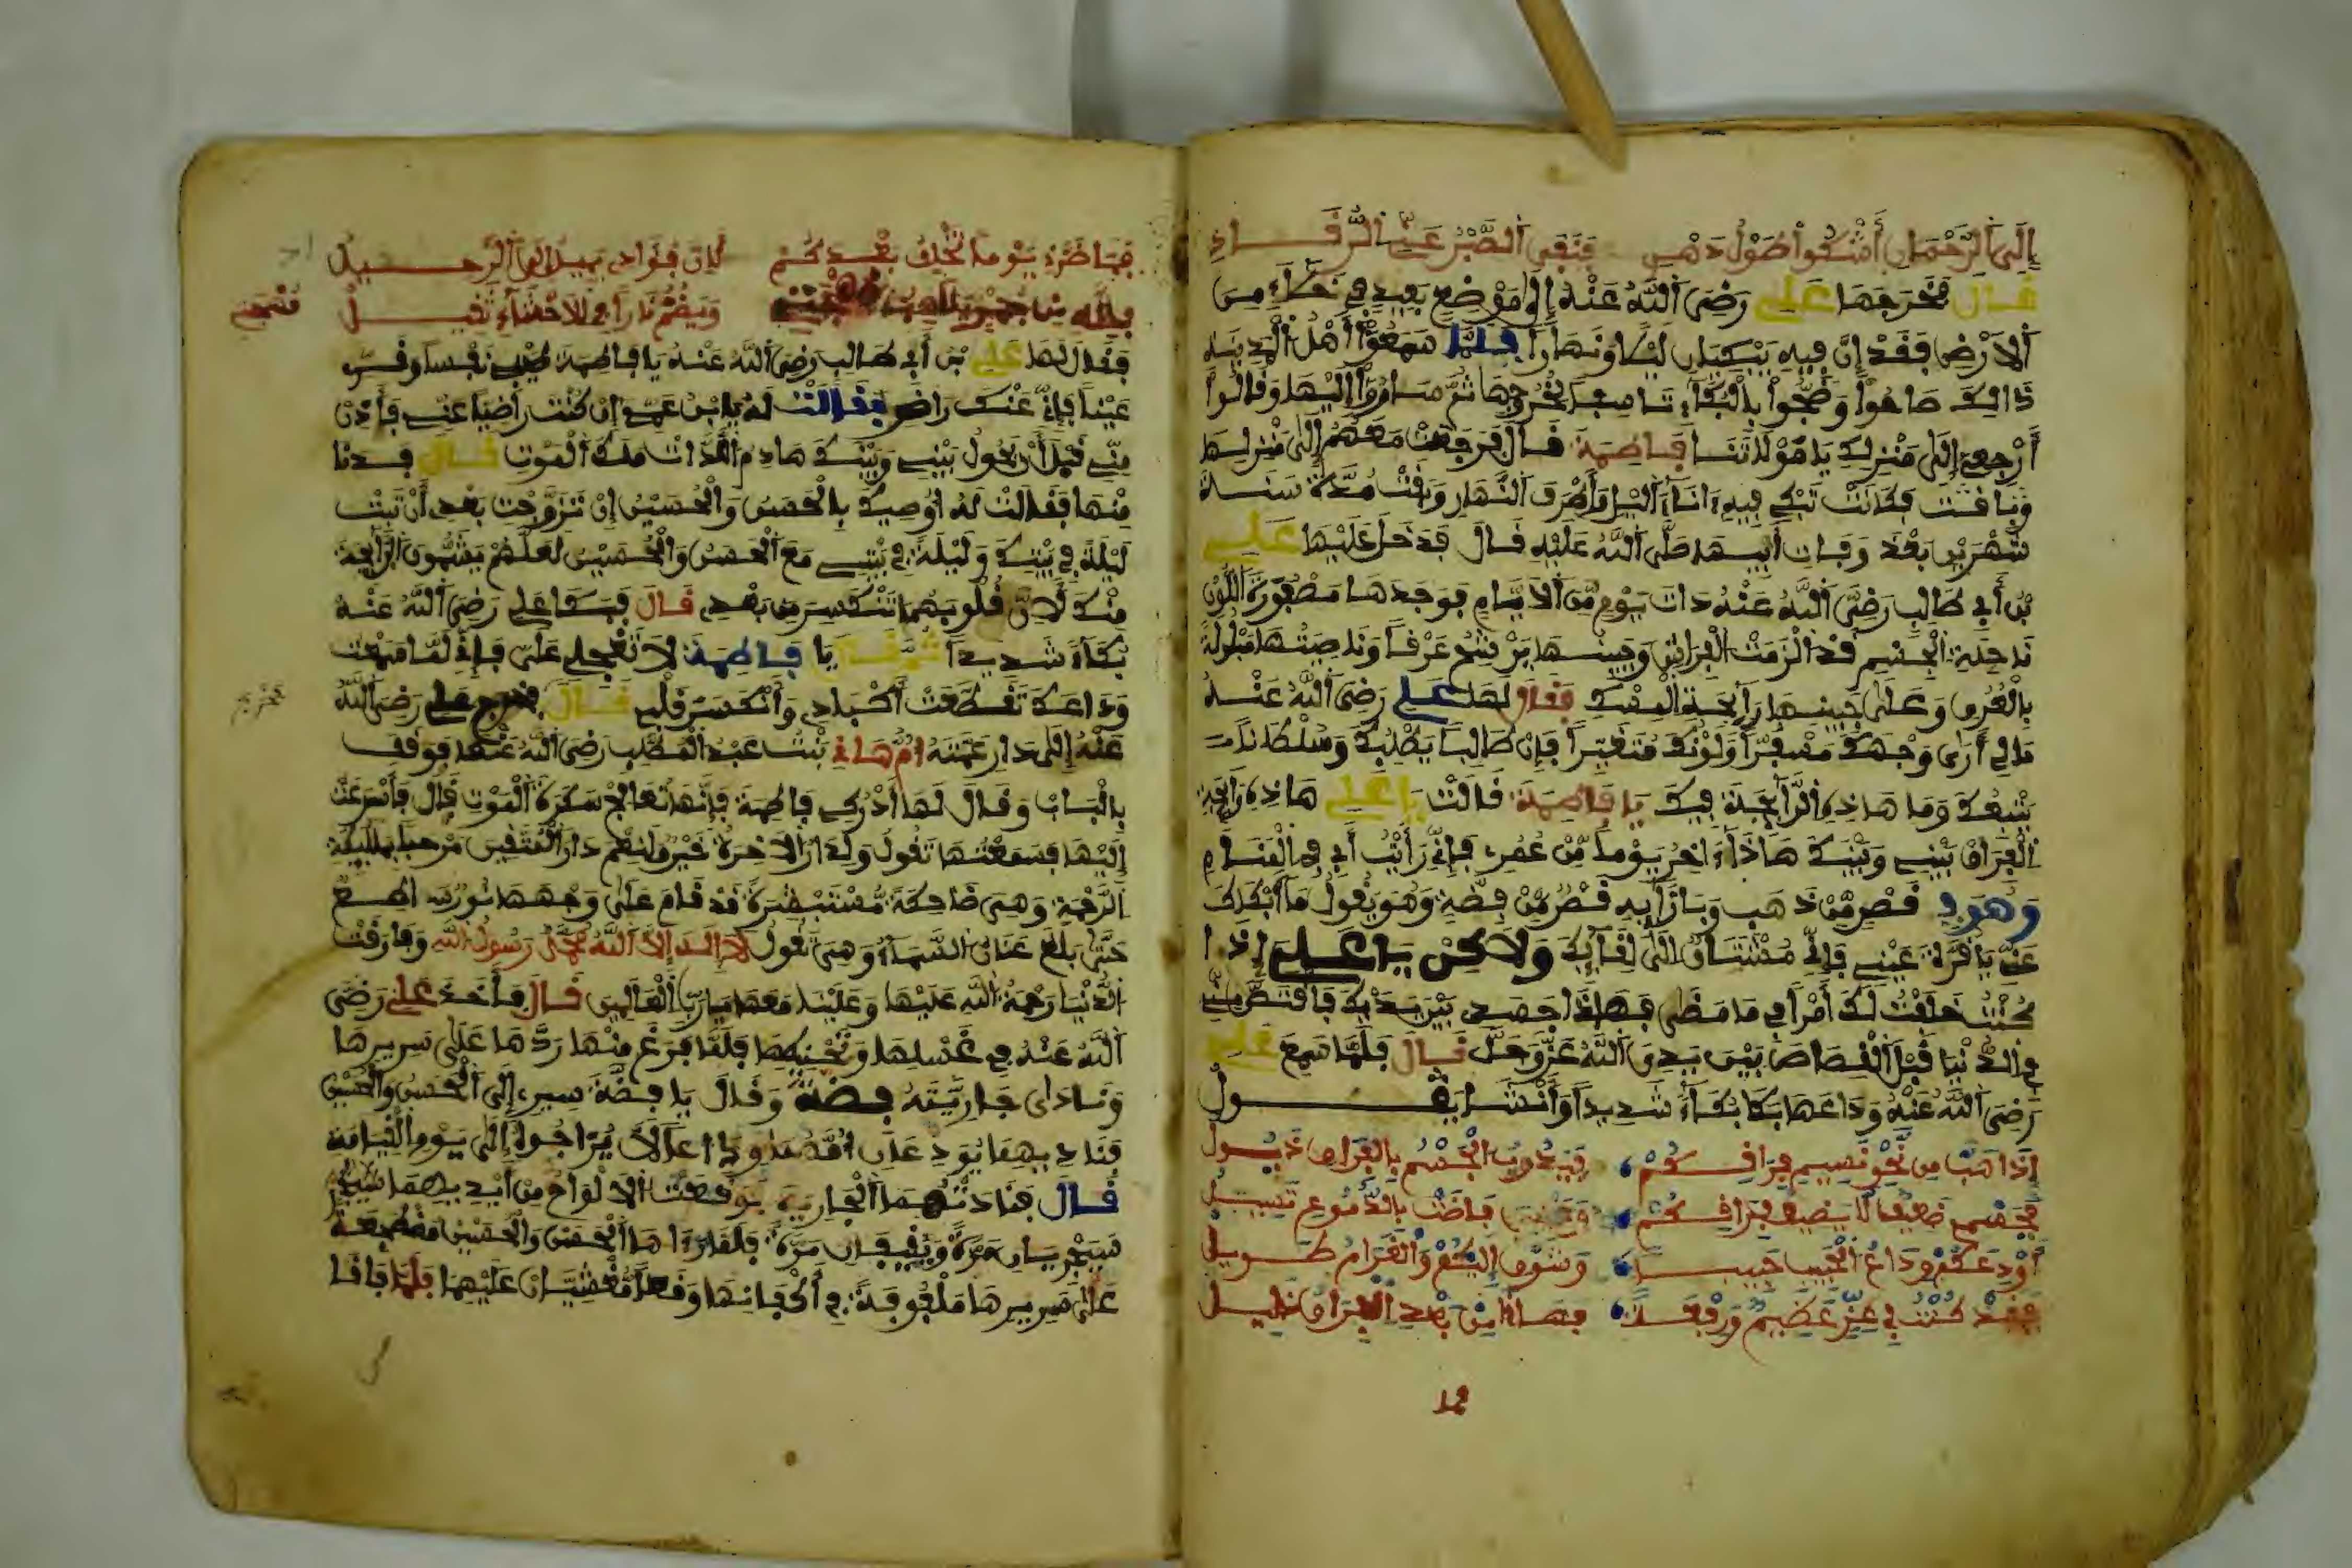 إِلَى الرَّحْمَانِ أَشْكُوا طُولَ دَهْرِي فَنَفِيَ الصَّبْرُ عَنِّي الرُّقَادِ
قَالَ فَخَرَجَهَا عَلِي رَضِيَ اللَّهُ عَنْهُ إِلَى مَوْضِعٍ بَعِيدٍ فِي خَلَاءٍ مِنَ
الأَرْضِ فَقَدْ إِنَّ فِيهِ يَبْكِيَانِ لَيْلاً وَنَهَاراً فَلَمَّا سَمِعُوا أَهْلُ الْمَدِينَةِ
ذَالِكَ صَاحُوا وَضَجُّوا بِالْبُكَاءِ تَاسِفاً لِخُرُوجِهَا ثُمَّ سَارُوا إِلَيْهَا وَقَالُوا
أَرْجِعِي إِلَى مَنْزِلِكِ يَا مَوْلَاتَنَا فَاطِمَةَ قَالَ فَرَجَعَتْ مَعَهُمْ إِلَى مَنْزِلِهَا
فَكَانَتْ تَبْكِي فِيهِ ءَانَاءَ الَّيْلِ وَأَطْرَفَ النَّهَارِ وَبَقْتْ مُدَّةً سَنَة
شَهْرَيْنِ بَعْدَ وَفَاتِ أَبِيهَا صَلَّى اللَّهُ عَلَيْهِ قَالَ فَدَخَلَ عَلَيْهَا عَلِي
بْنُ أَبِي طَالِبٍ رَضِيَ اللَّهُ عَنْهُ ذَاتَ يَوْمٍ مِّنَ الأَيَّامِ فَوَجَدَهَا مَصْفُورَةَ اللَّوْنِ
نَاحِلَةَ الْجِسْمِ قَدْ الْزَمَتْ الْفِرَاشَ وَجَبِينُهَا يَرْشَحُ عَرَقاً وَنَاصِيَتُهَا مَبْلُولَةً
بِالْعَرَقِ وَعَلَى جَبِينِهَا رَائِحَةَ الْمِسْكِ فَقَالَ لَهَا عَلِي رَضِيَ اللَّهُ عَنْهُ
مَالِي أَرَى وَجْهَكِ مُصْفَرّاً وَلَوْنَكِ مُتَغَيِّراً فَإِنْ طَالِباً يَطْلُبُكِ وَسُلْطَانا
يَتْبَعُكِ وَمَا هَاذِهِ الرَّائِحَةُ فِيكِ يَا فَاطِمَةُ قَالَتْ يَا عَلِي هَاذِهِ رَائِحَةُ
الْفِرَاقِ بَيْنِي وَبَيْنَكَ هَاذَا ءَاخِرُ يَوْمٍ مِّنْ عُمْرِي فَإِنِّي رَأَيْتُ أَبِي فِي الْمَنَامِ
وَهُوَ فِي قَصْرٍ مِّنْ ذَهَبٍ وَبِازَائِهِ قَصْرٌ مِّنْ فِضَّةٍ وَهُوَ يَقُولُ مَا أَبْطَاكِ
عَنِّي يَا قُرَّةَ عَيْنِي فَإِنِّي مُشْتَاقٌ إِلَى لِقَائِكِ وَلَاكِنْ يَا عَلِي إِذَا
كُنْتُ خَالَفْتُ لَكَ أَمْراً فِي مَا مَضَى فَهَا أَنَا بَيْنَ يَدَيْكَ فَاقْتَصَّ مِنِّي
فِي الدُّنْيَا قَبْلَ الْقِصَاصِ بَيْنَ يَدَيِ اللَّهِ عَزَّ وَجَلَّ قَالَ فَلَمَّا سَمِعَ عَلِي
رَضِيَ اللَّهُ عَنْهُ وَدَاعَهَا بَكَا بُكَاءً شَدِيداً وَأَنْشَا يَقُولُ
إِذَا هَبَّ مِن نَّحْوِ نَسِيمِ فِرَاقِكُمْ فَيَذُوبُ الْجِسْمُ بِالْفِرَاقِ ذَبُولُ
فَجِسْمِي ضَعِيفٌ لَا يُضِيقُ فِرَاقَكُمْ فَاضَتْ بِالدُّمُوعِ تَسِيلُ
أُوَدِّعُكُمْ وِدَاعَ الْحَبِيبِ حَبِيبَهُ وَشَوْقِي إِلَيْكُمْ وَالْغَرَامُ طَوِيلُ
فَقَدْ كُنْتُ فِي عِزٍّ عَظِيمٍ وَرِفْعَةٍ فَهَا أَنَا مِنْ بَعْدِ الْفِرَاقِ ذَلِيلُ
فما
فَمَا ضَرَّنِي يَوْماً بَعْدَكُمْ لِأَنَّ فُؤَادِي يَمِيلُ إِلَى الرَّحِيلُ
وَيَضْرَمُ نَاراً فِي الأَحْشَاءِ ثَقِيلُ
فَقَالَ لَهَا عَلِي بْنُ أَبِي طَالِبٍ رَضِيَ اللَّهُ عَنْهُ يَا فَاطِمَةُ طِيبِي نَفْساً وَقَرِّي
عَيْناً فَإِنِّي عَنْكِ رَاضٍ فَقَالَتْ لَهُ يَا بْنَ عَمِّي إِنْ كُنْتَ رَاضِياً عَنِّي فَأَدْنُ
مِنِّي قَبْلَ أَنْ يَحُولَ بَيْنِي وَبَيْنَكَ هَادِمُ اللَّذَّاتِ مَلَكُ الْمَوْتِ قَالَ فَدَنَا
مِنْهَا فَقَالَتْ لَهُ أُوصِيكَ بِالْحَسَنِ وَالْحُسَيْنِ إِنْ تَزَوَّجْتَ بَعْدِي أَنْ تَبِتْ
لَيْلَةً فِي بَيْتِكَ وَلَيْلَةً فِي بَيْتِي مَعَ الْحَسَنِ وَالْحُسَيْنِ لَعَلَّهُمْ يَشُمُّونَ الرَّائِحَةَ
مِنْكَ لِأَنَّ قُلُوبَهُمَا تَنْكَسِرُ مِن بَعْدِي قَالَ فَبَكَا عَلِي رَضِيَ اللَّهُ عَنْهُ
بُكَاءً شَدِيداً ثُمَّ قَالَ يَا فَاطِمَةُ لَا تَعْجَلِي عَلَيَّ فَإِنِّي لَمَّا سَمِعْتُ
وَدَاعَكِ تَقَطَّعَتْ أَكْبَادِي وَأَنْكَسَرَ قَلْبِي قَالَ فَخَرَجَ عَلِي رَضِيَ اللَّهُ
عَنْهُ إِلَى دَارِ عَمَّتِهِ أُمِّ هَانِي بِنْتِ عَبْدِ الْمُطَّلِبِ رَضِيَ اللَّهُ عَنْهَا فَوَقَفَ
بِالْبَابِ وَقَالَ لَهَا أَدْرِكِي فَاطِمَةَ فَإِنَّهَا تُعَالِجُ سَكَرَةَ الْمَوْتِ قَالَ فَأَسْرَعَتْ
إِلَيْهَا فَسَمِعْتُهَا تَقُولُ وَلَدَارُ الآخِرَةِ خَيْرٌ وَلَنِعْمَ دَارُ الْمُتَّقِينَ مَرْحَباً بِمَلَئِكَةِ
الرَّحْمَةِ وَهِيَ ضَاحِكَةٌ مُّسْتَبْشِرَةٌ قَدْ قَامَ عَلَى وَجْهِهَا نُورٌ سَاطِعٌ
حَتَّى بَلَغَ عَنَانَ السَّمَاءِ وَهِيَ تَقُولُ لَا إِلَهَ إِلَّا اللَّهُ مُحَمَّدٌ رَسُولُ اللَّهِ وَفَارَقَتْ
الدُّنْيَا رَحْمَةُ اللَّهِ عَلَيْهَا وَعَلَيْنَا مَعَهَا يَا رَبَّ الْعَالَمِينَ قَالَ فَأَخَذَ عَلِي رَضِيَ
اللَّهُ عَنْهُ فِي غَسْلِهَا وَتَحْنِيطِهَا فَلَمَّا فَرَغَ مِنْهَا رَدَّهَا عَلَى سَرِيرِهَا
وَنَادَى جَارِيَتَهُ فِضَّةَ وَقَالَ يَا فِضَّةُ سِيرِي إِلَى الْحَسَنِ وَالْحُسَيْنِ
فَنَادِيهِمَا يُوَدِّعَانِ أُمَّهُمَا وِدَاعاً لَا يُرَاجُوا إِلَى يَوْمِ الْقِيَامَةِ
قَالَ فَنَادَتْهُمَا الْجَارِيَةُ فَوَقَعَتْ الأَلْوَاحُ مِن أَيْدِيهِمَا
مَرَّةً وَيَفِيقَانِ مَرَّةً فَلَمَّا رَءَاهَا الْحَسَنُ وَالْحُسَيْنُ مُضْطَجِعَةً
عَلَى سَرِيرِهَا مَلْفُوفَةً فِي أَكْفَانِهَا وَقَعَا مُغْشِيَّانِ عَلَيْهِمَا فَلَمَّا فَاقَا